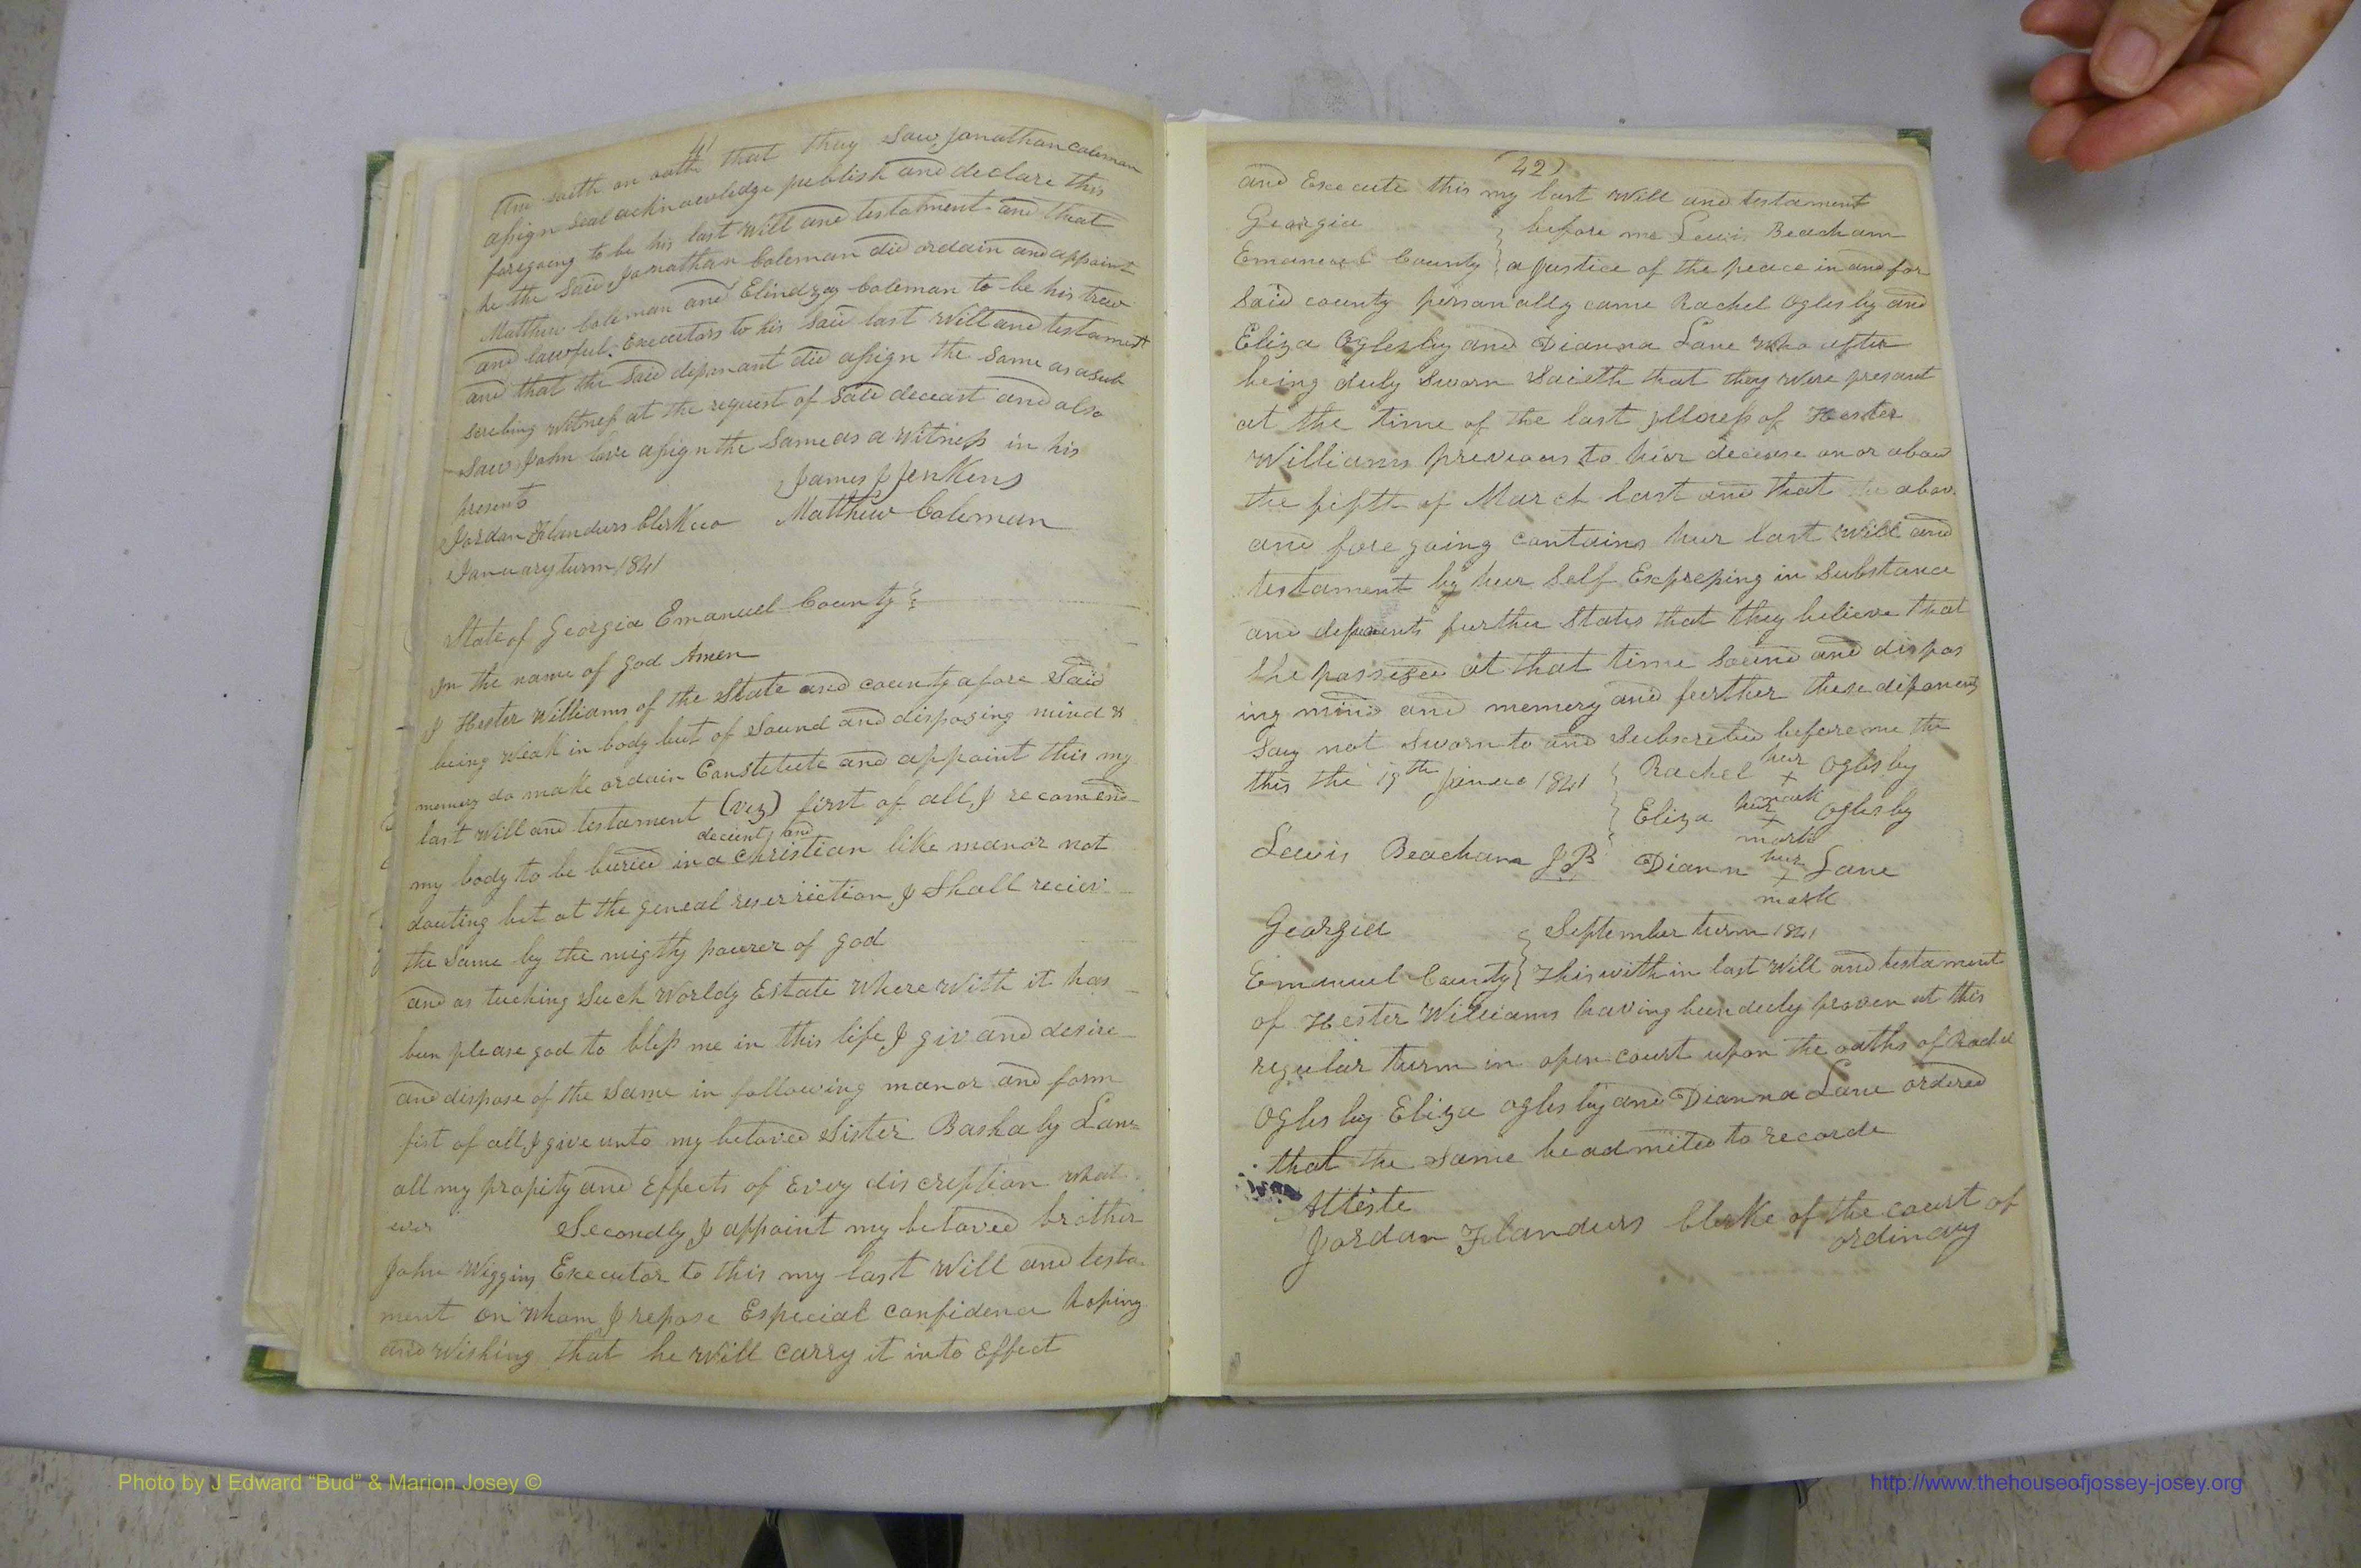 41
saith on oathe that they Saw Jonathan Coleman
assign Seal acknowledge publish and declare this
foregoeng to be his last Will and testament and that
he the Said Jonathan Coleman did ordain and appoint
Matthew Coleman and Elindzey Coleman to be his trew
and lawful Executors to his Said last Will and testament
and that the Said deponant did assign the Same as a sub
scribing Witness at the request of Said deceast and also
Saw John love assign the Same as a Witness in his
presents
James J Jenkins
Jordan Flanders Clerk cco Matthew Coleman
January turm 1841
State of Georgia Emanuel County
In the name of God Amen
I Hester Williams of the State and county afore Said
being weak in body but of Sound and disposing mind &
memory do make ordain Constitute and appoint this my
last Will and testament (viz) first of all I recomend
my body to be buried in a decient and Christian like manor not
douting but at the geneal reserriction I Shall reciev
the Same by the migthy pourer of god
and as tuching Such Worldy Estate Where With it has
been please god to bless me in this life I giv and desire
and dispose of the Same in following manor and form
fist of all I give unto my beloved Sister Bashaby Lane
all my propity and Effects of Evey discreption what
ever Secondly I appoint my beloved brother
John Wiggins Executor to this my last Will and testa
ment on Whom I repose Especial confidence hoping
and Wishing that he Will Carry it into Effect
(42)
and Execute this my last Will and testament
Georgia } before me Lewis Beacham
Emanuel County } a Justice of the peace in and for
Said county personally came Rachel Oglesby and
Eliza Oglesby and Dianna Lane Who after
being duly Sworn Saieth that they Were presant
at the time of the last illness of Hester
Williams previous to hir decease on or abou
the fifth of March last and that the abov
and fore going contains hur last Will and
testament by hur Self Expressing in Substance
and deponents further States that they believe that
She possesed at that time Sound and dispos
ing mind and memory and further these deponents
Say not Sworn to and Subscribed before me the
this the 19th 1841 } Rachel hur X mark Oglesby
Eliza hur X mark Oglesby
Lewis Beacham JP Diann hur X mark Lane
Georgia } September turm 1841
Emanuel County } This within last Will and testament
of Hester Williams having been duly proven at this
regular turm in open court upon the oaths of Rachel
Oglesby Eliza Oglesby and Dianna Lane ordered
that the Same be admited to recorde
Atteste
Jordan Flanders Clerke of the court of
ordinary
Photo by J Edward “Bud” & Marion Josey ©
http://www.thehouseofjossey-josey.org